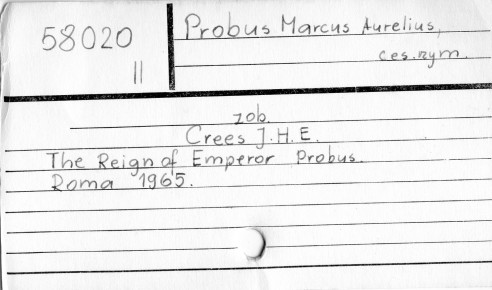 58020
II
Probus Marcus Aurelius,
ces. rzym.
zob.
Crees J.H.E.
The Reign of Emperor Probus.
Roma 1965.